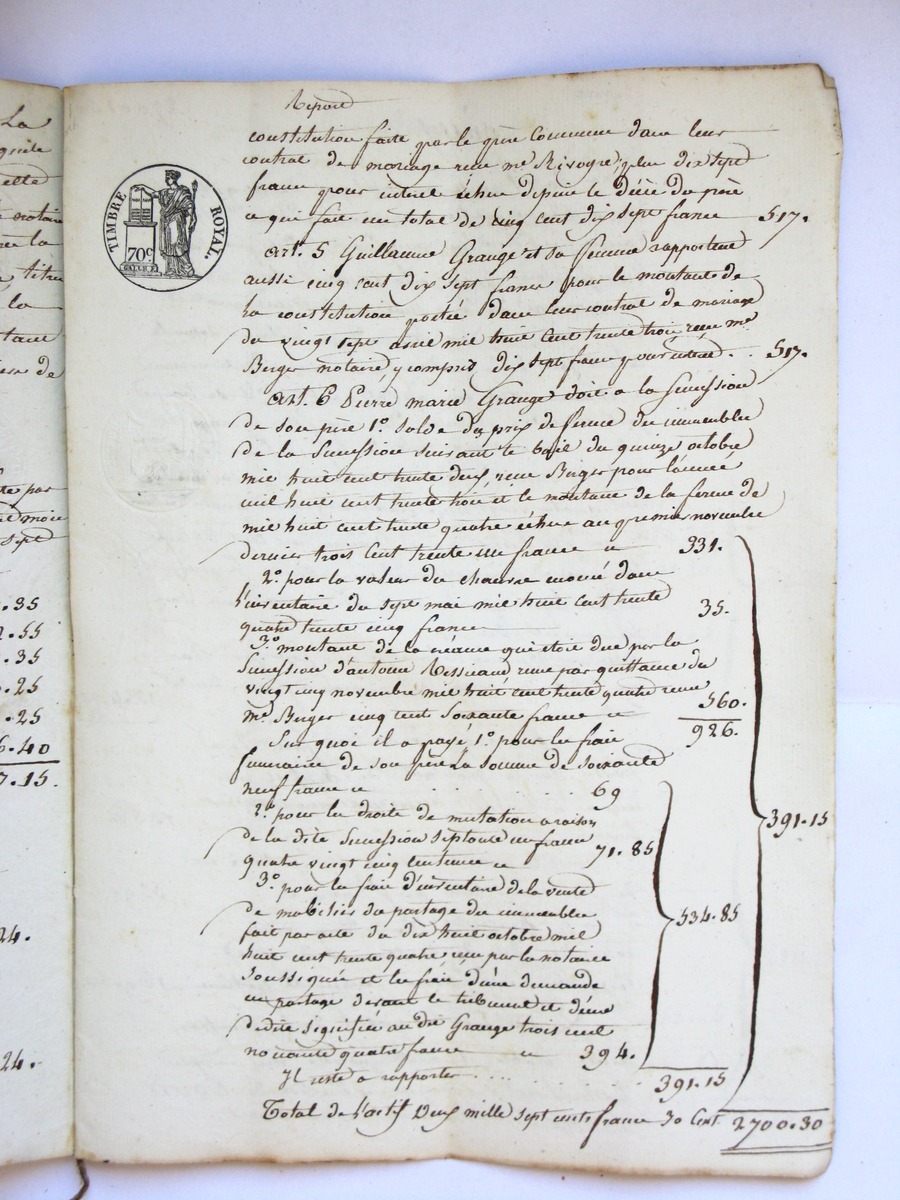 La
quite
elle
notaire
la
titre
la
de
te par
mois
sept
.35
.55
.35
.25
.25
6.40
7.15.
24.
24.
TIMBRE ROYAL.
70c
Report
constitution faite par le père Commun dans leur
contrat de mariage reçu me Rivogre, plus dix sept
francs pour interet échus depuis le Décès du père
ce qui fait un total de cinq cent dix sept francs 517.
art. 5 Guillaume Grange et sa femme rapportent
aussi cinq cent dix sept francs pour le montant de
la constitution portée dans leur contrat de mariage
du vingt sept avril mil huit cent trente trois, reçu me
Berger notaire, y compris dix sept francs pour interet . . 517.
art. 6 Pierre marie Grange doit a la succession
de son père 1o. solde du prix de ferme des immeubles
de la succession suivant le bail du quinze octobre
mil huit cent trente deux, reçu Berger pour l'année
mil huit cent trente trois et le montant de la ferme de
mil huit cent trente quatre échue au premier novembre
dernier trois cent trente un francs ci 331.
2o. pour la valeur du chanvre énoncé dans
l'inventaire du sept mai mil huit cent trente
quatre trente cinq francs 35.
3o. montant de la créance qui étoit due par la
succession d'antoine Ressicaud reçue par quittance du
vingt cinq novembre mil huit cent trente quatre reçue
me Berger cinq cent soixante francs ci 560.
926.
Sur quoi il a payé 1o. pour les frais
funeraires de son père la somme de soixante
neuf francs ci . . . . . 69
2o. pour les droits de mutation a raison
de la dite succession septante un francs
quatre vingt cinq centimes ci 71.85
3o. pour les frais d'inventaire de la vente
de mobilier du partage des immeubles
fait par acte du dix huit octobre mil
huit cent trente quatre reçu par le notaire
soussigné et les frais d'une demande
en partage devant le tribunal et d'une
dédite signifiée au dit Grange trois cent
nonante quatre francs ci 394.
534.85
Il reste a rapporter . . . . . . 391.15
391.15
Total de l'actif Deux mille sept cents francs 30 Cent 2700.30